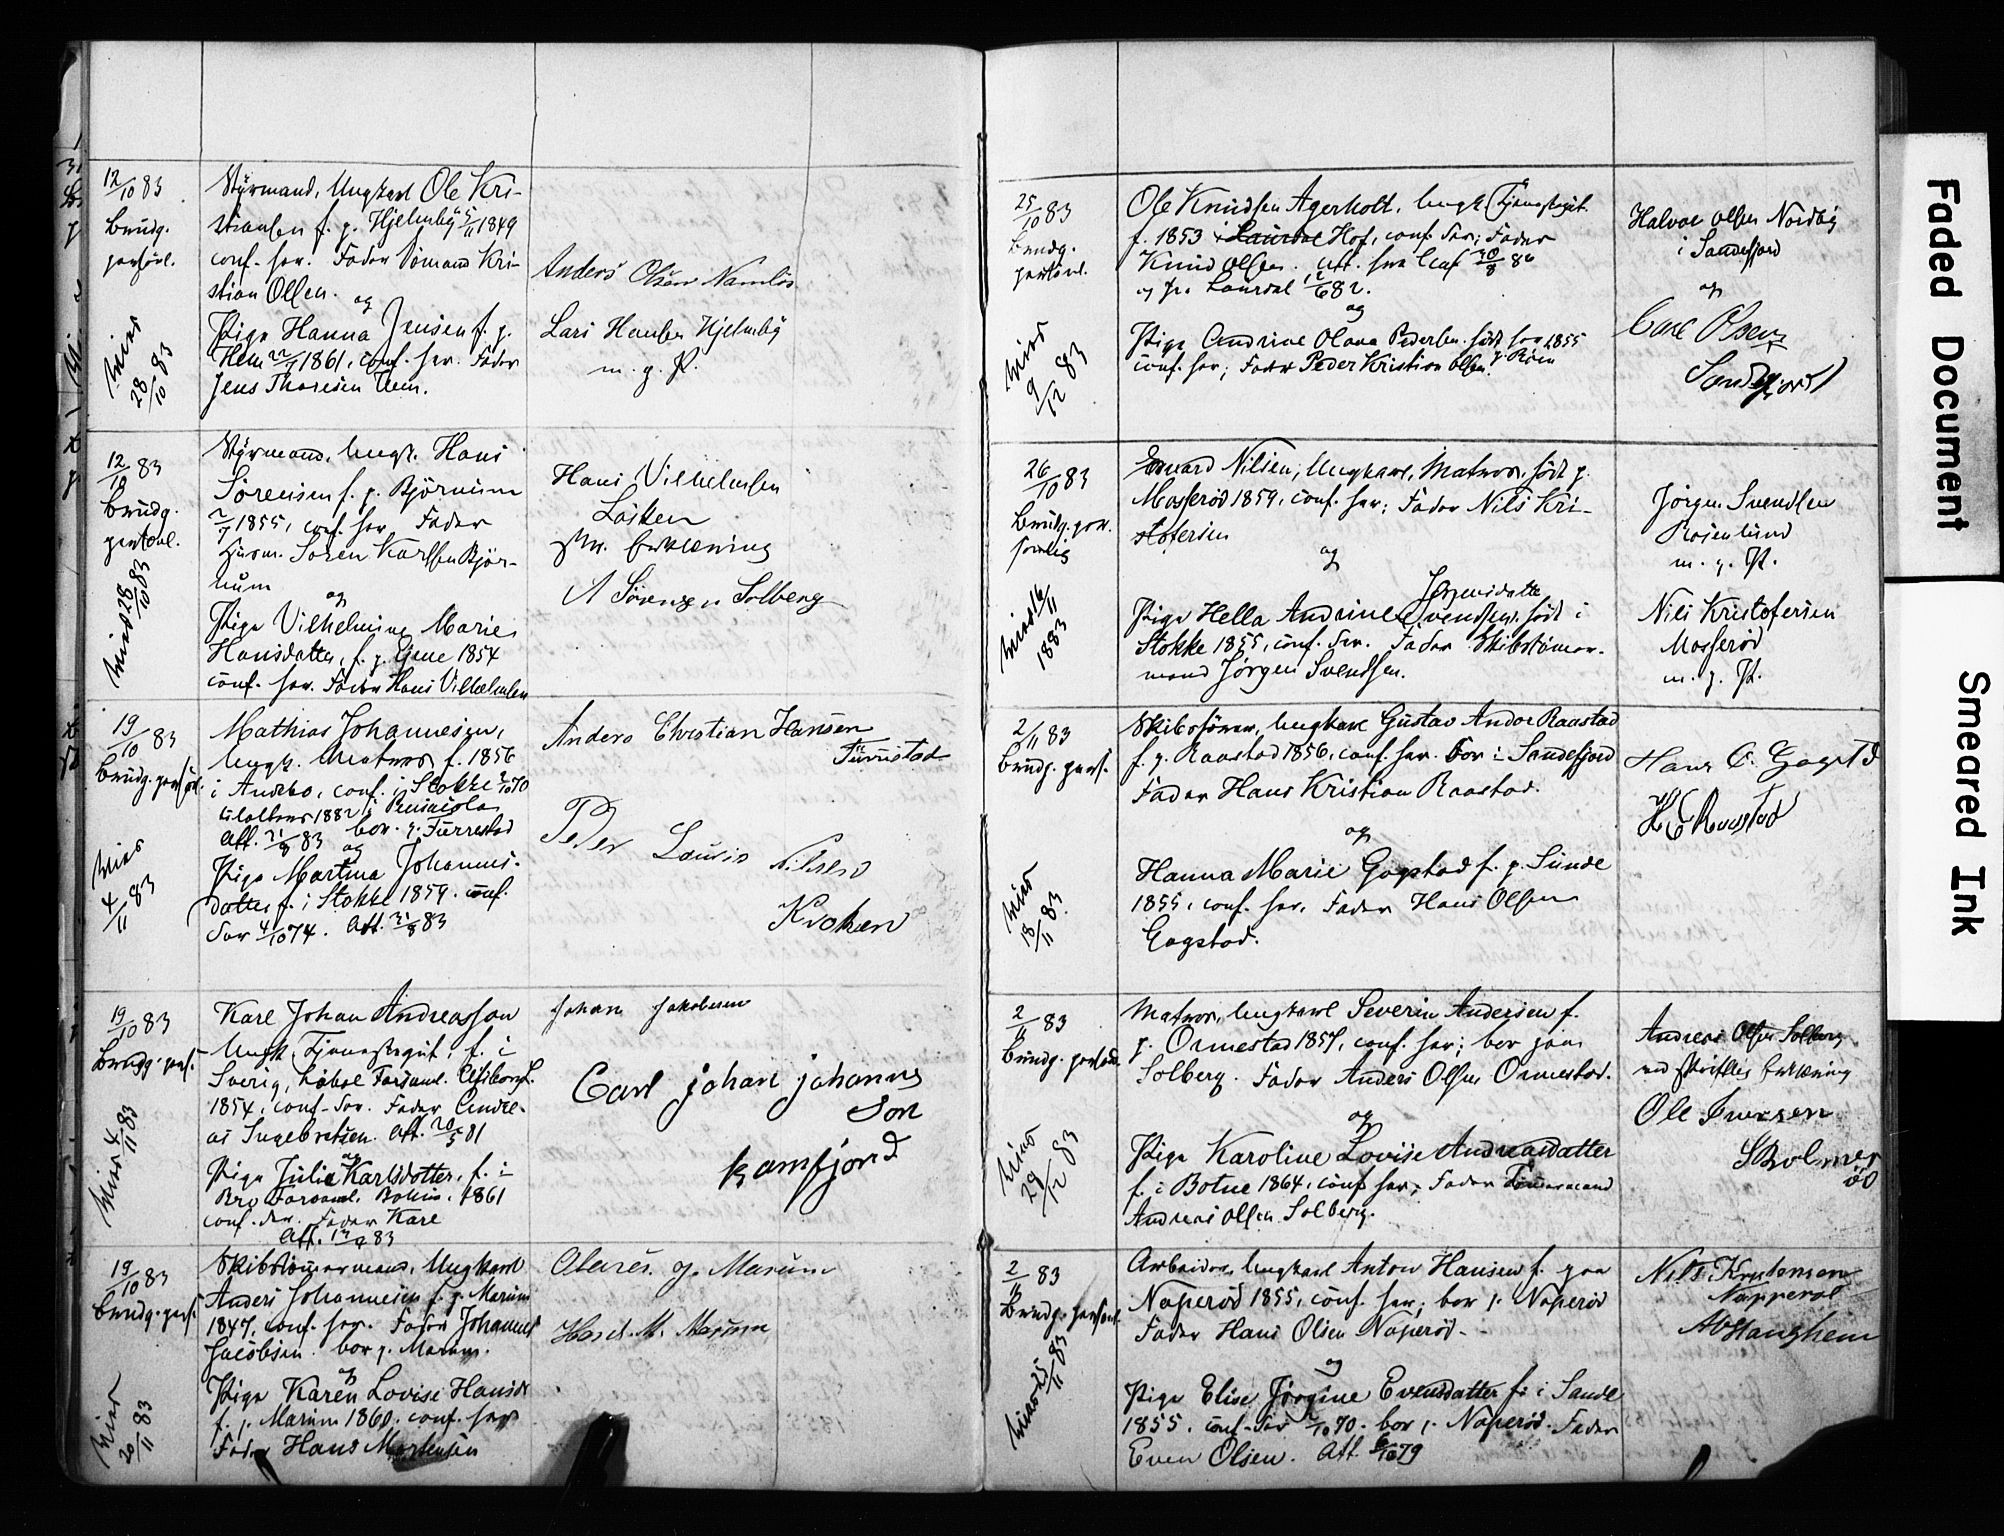 12/10 83
Brudg.
personl.
Viet
28/10 83
Styrmand, Ungkarl Ole Kri-
stiansen f. p. Hjelmby 5/11 1849
conf. her. Fader Sømand Kri-
stian Olsen.
og
Pige Hanna Jensen f. p.
Hem 22/7 1861, conf. her. Fader
Jens Thoresen Hem.
Anders Olsen Namløs
Lars Hansen Hjelmby
m. p. P.
12/10 83
Brudg.
personl.
Viet 28/10 83
Styrmand, Ungk. Hans
Sørensen f. p. Bjørnum
2/7 1855, conf. her. Fader
Husm. Søren Karlsen Bjør-
num
og
Pige Vilhelmine Marie
Hansdatter, f. p. 1854
conf. her. Fader Hans Vilhelmsen
Hans Vilhelmsen
Løsken
skr. Erklæring
A Sørensen Solberg
19/10 83
Brudg. personl.
Viet
4/11 83
Mathias Johannesen,
Ungk. Matros f. 1856
i Andebo, conf. i Stokke 2/10 70
1882 i Pensacola
Att. 21/8 83 bor p. Furrestad
og
Pige Martina Johannes-
datter f. i Stokke 1859. conf.
Der 4/10 74. Att. 31/8 83
Anders Christian Hansen
Furustad
Peder Lauris Nilsen
Kroken
19/10 83
Brudg. pers.
Viet 4/11 83
Karl Johan Andreasson
Ungk. Tjenestegut, f. i
Sverig, Forsaml. Elfsborgsl.
1854, conf. der. Fader Andre-
as Ingebretsen. Att. 20/5 81
og
Pige Julia Karlsdotter, f. i
Bro Forsaml. Bohus. 1861
conf. der. Fader Karl
Att. 83
Johan Jakobsen
Carl johan johanns
son
kamfjord
19/10 83
Brudg. pers.
Viet
20/11 83
Skibstømermand, Ungkarl
Anders Johannesen f. p. Marum
1847, conf. her. Fader Johannes
Jacobsen. bor p. Marum.
og
Pige Karen Lovise Hansd.
f. p. Marum 1860. conf. her
Fader Hans Mortensen
Olaves. J. Marum
Hans. M. Marum
25/10 83
Brudg.
personl.
Viet
9/12 83
Ole Knudsen Agerholt, Ungk. Tjenestegut.
f. 1853 i Laurdal Hof, conf. Der; Fader
Knud Olsen. Att. fra Hof 30/8 80
og fra Laurdal 1/6 82.
og
Pige Andrine Olava Pedersen født her 1855
conf. her; Fader Peder Kristian Olsen p. Røen
Halvor Olsen Nordby
i Sandefjord
og
Carl Olsen
Sandefjord
26/10 83
Brudg. per-
sonlig
Viet 16/11
1883
Edvard Nilsen, Ungkarl, Matros, født p.
Mosserød 1859, conf. her; Fader Nils Kri-
stofersen
og
Jørgensdatter
Pige Hella Andrine Svendsen, født i
Stokke 1855, conf. Der. Fader Skibstømer-
mand Jørgen Svendsen.
Jørgen Svendsen
Rosenlund
m. p. P.
Nils Kristofersen
Mosserød
m. p. P.
2/11 83
Brudg. pers.
Viet
18/11 83
Skibsfører, Ungkarl Gustav Andor Raastad
f. p. Raastad 1856, conf. her. Bor i Sandefjord
Fader Hans Kristian Raastad.
og
Hanna Marie Gogstad f. p. Sunde
1855, conf. her, Fader Hans Olsen
Gogstad.
Hans O. Gogstd
H C Raastad
2/11 83
Brudg. personl.
Viet
29/12 83
Matros, Ungkarl Severin Andersen f.
p. Ormestad 1857, conf. her; bor paa
Solberg. Fader Anders Olsen Ormestad.
og
Pige Karoline Lovise Andreasdatter
f. i Botne 1864, conf her; Fader Tømermand
Andreas Olsen Solberg.
Andreas Olsen Solberg
ved skriftlig Erklæring
Ole Iversen
Skolmer
ød
2/11 83
Brudg. personl.
Viet 25/11 83
Arbeider, Ungkarl Anton Hansen f. paa
Naperød 1855, conf. her; bor p. Naperød
Fader Hans Olsen Naperød.
og
Pige Elise Jørgine Evensdatter f. i Sande
1855, conf. Der 2/10 70. bor p. Naperød. Fader
Even Olsen. Att. 6/10 79
Nils Krystensen
Napperød
A Haughem
Faded Document
Smeared Ink